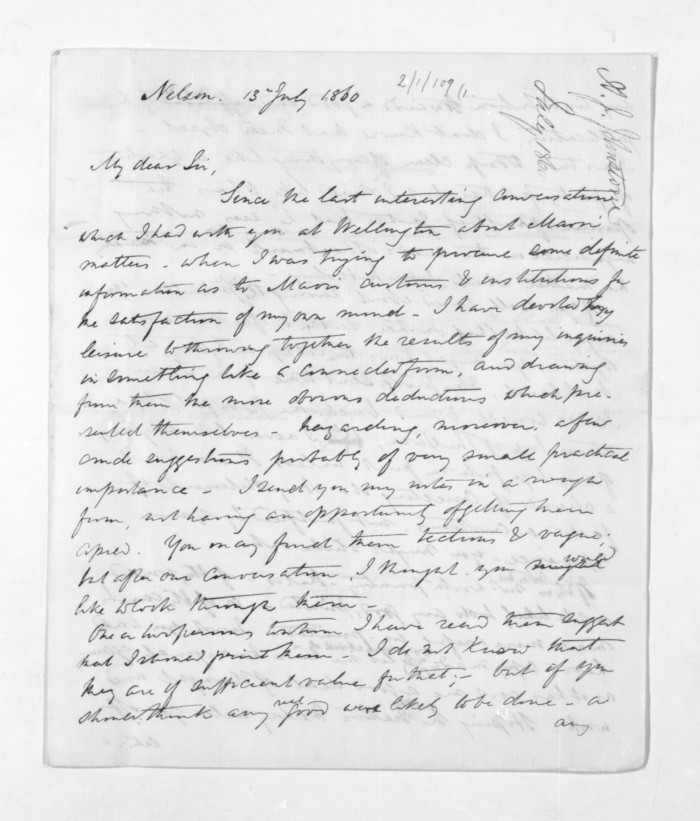 2/1/109/1.
H. S. Johnston
July 1860
Nelson. 13th July 1860
My dear Sir,
Since the last interesting conversation
which I had with you at Wellington about Maori
matters - when I was trying to procure some definite
information as to Maori customs & institutions for
the satisfaction of my own mind - I have devoted my
leisure to throwing together the results of my inquiries
in something like a connected form, and drawing
from them the more obvious deductions which pre-
sented themselves - hazarding, moreover, a few
crude suggestions probably of very small practical
importance - I send you my notes in a rough
form, not having an opportunity of getting them
copied. You may find them tedious & vague;
but after our conversation, I thought you would
like to look through them -
One or two persons to whom I have read them suggest
that I should print them - I do not know that
they are of sufficient value for that; - but if you
should think any real good were likely to be done - or
any